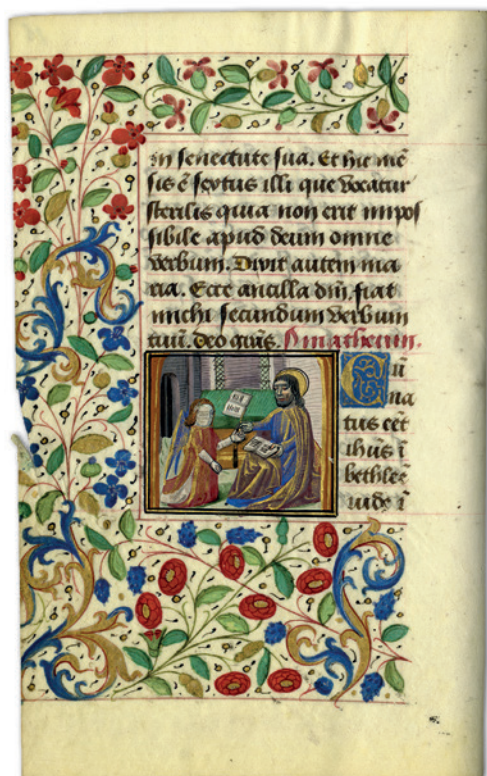 in senectute sua. Et hic mē
sis ē sextus illi que vocatur
sterilis quia non erit impos
sibile apud deum omne
verbum. Dixit autem ma
ria. Ecce ancilla dn̄i fiat
michi secundum verbum
tuū. deo grās. S matheum.
Cū
na
tus eēt
ihūs ī
bethleē
iude ī